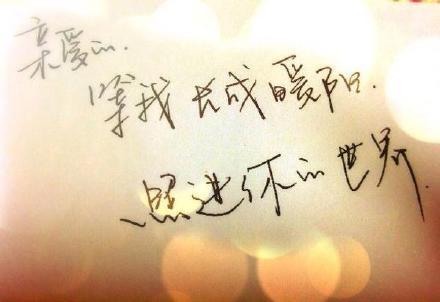 亲爱的.
等我长成暖阳.
照进你的世界.